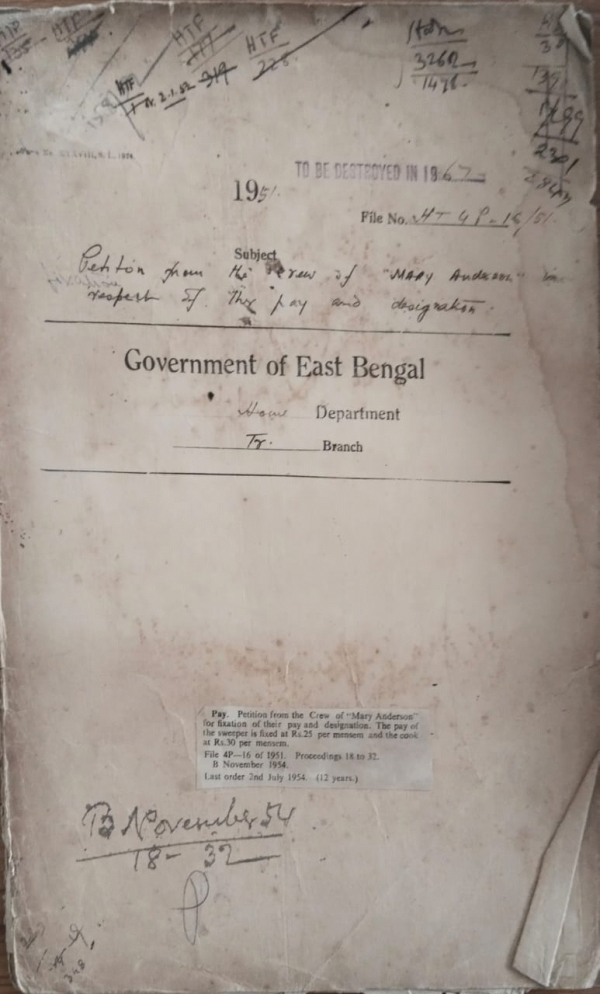 HTF
HTF
HTF
228
HTF
1 Dt. 2.1.52 319
3262
1476
2301
TO BE DESTROYED IN 1967
1951
File No. HT 4P-16/51
Subject
Petition from the crew of "MARY Anderson" in
respect of the pay and designation.
Government of East Bengal
Home Department
Tr. Branch
Pay. Petition from the Crew of "Mary Anderson"
for fixation of their pay and designation. The pay of
the swerper is fixed at Rs.25 per mensem and the cook
at Rs.30 per mensem.
File 4P—16 of 1951. Proceedings 18 to 32.
B November 1954.
Last order 2nd July 1954. (12 years.)
B November 54
18 - 32